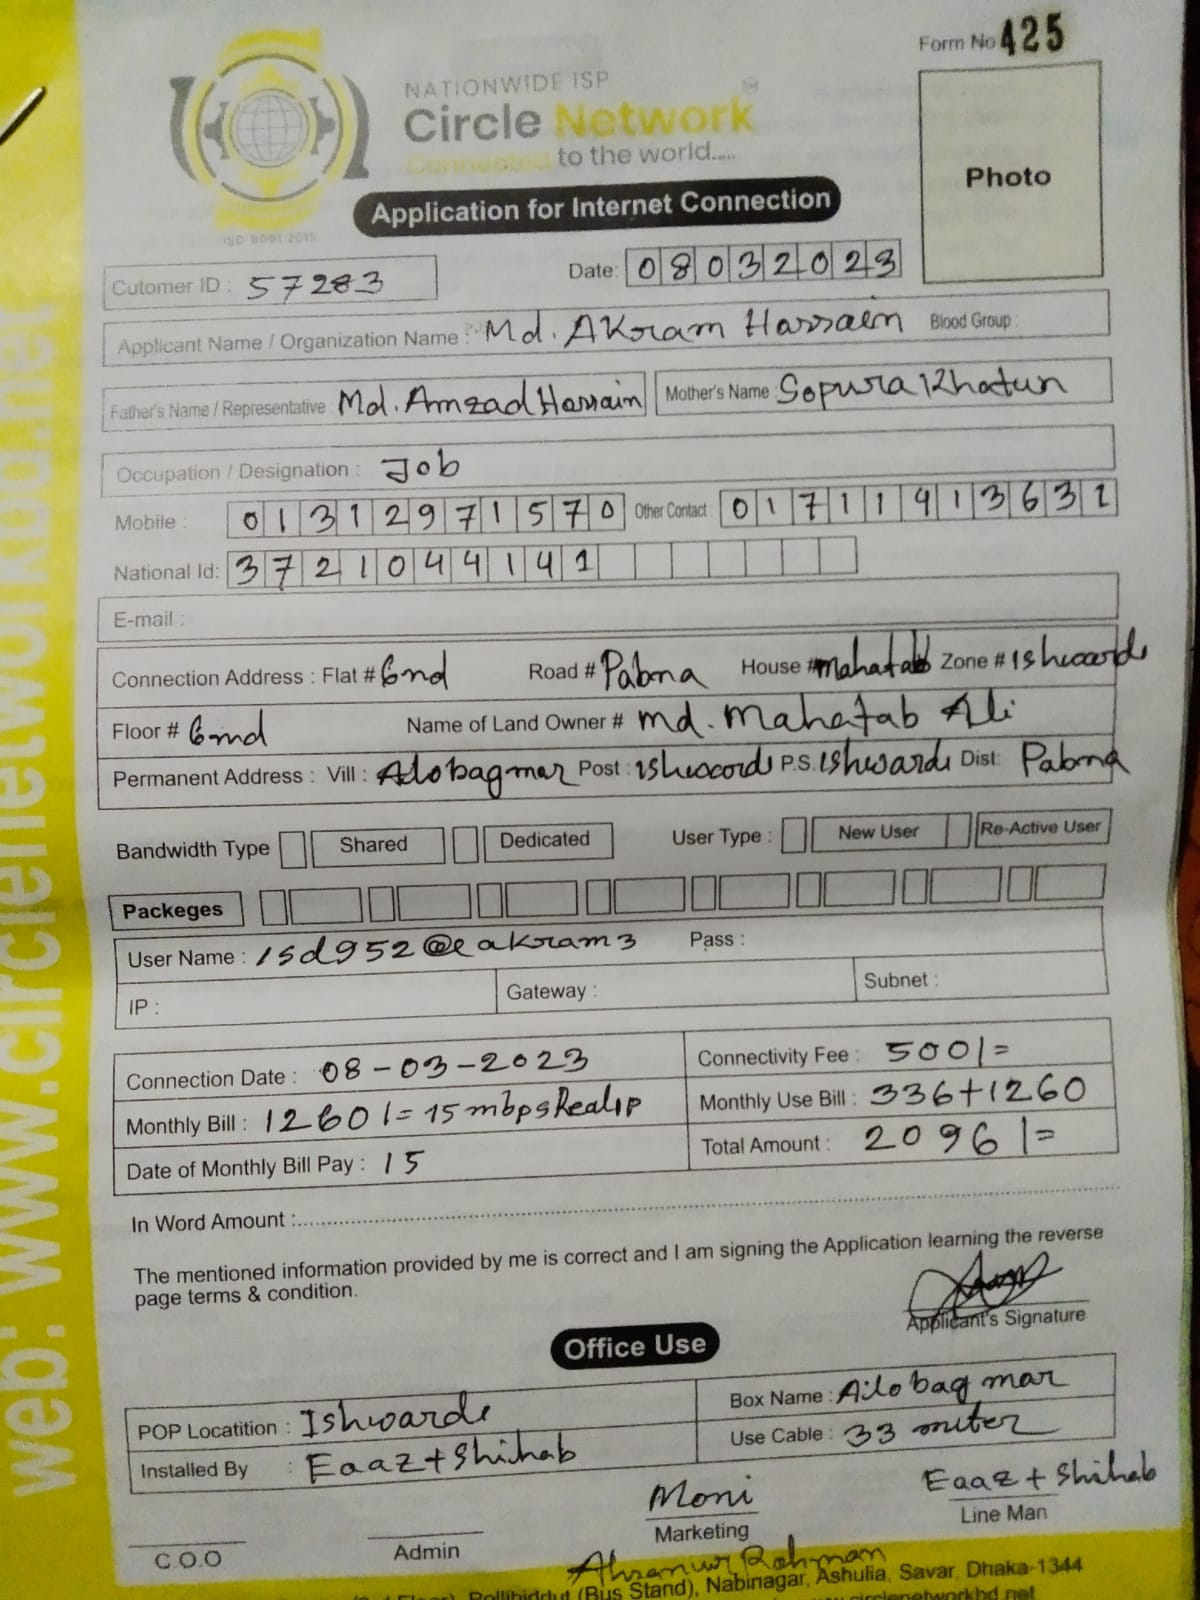 Form No 425
NATIONWIDE ISP
Circle Network
Connected to the world.....
Photo
Application for Internet Connection
ISO 9001:2015
Cutomer ID : 57283
Date: 08032023
Applicant Name / Organization Name : Md. AKram Hossain Blood Group :
Father's Name / Representative : Md. Amzad Hossain Mother's Name : Sopura Khatun
Occupation / Designation : Job
Mobile : 01312971570 Other Contact : 01711413632
National Id: 3721044141
E-mail :
Connection Address : Flat # Gnd Road # Pabna House # mahatab Zone # Ishwardi
Floor # Gnd Name of Land Owner # md. Mahatab Ali
Permanent Address : Vill : Ailobagmar Post : ishwordi P.S. Ishwardi Dist: Pabna
Bandwidth Type Shared Dedicated User Type : New User Re-Active User
Packeges
User Name : isd952@eakram3 Pass :
IP : Gateway : Subnet :
Connection Date : 08-03-2023 Connectivity Fee : 500/=
Monthly Bill : 1260/= 15 mbps RealIP Monthly Use Bill : 336+1260
Date of Monthly Bill Pay : 15 Total Amount : 2096/=
In Word Amount :
The mentioned information provided by me is correct and I am signing the Application learning the reverse
page terms & condition.
Applicant's Signature
Office Use
POP Locatition : Ishwardi Box Name : Ailobag mar
Installed By : Eaaz + Shihab Use Cable : 33 miter
Moni Eaaz + Shihab
C.O.O Admin Marketing Line Man
Ahsanur Rahman
(Bus Stand), Nabinagar, Ashulia, Savar, Dhaka-1344
circlenetworkbd.net
web: www.circlenetworkbd.net